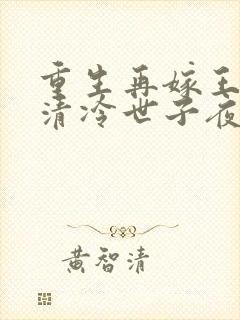 重生再嫁王
清冷世子夜
黄智清